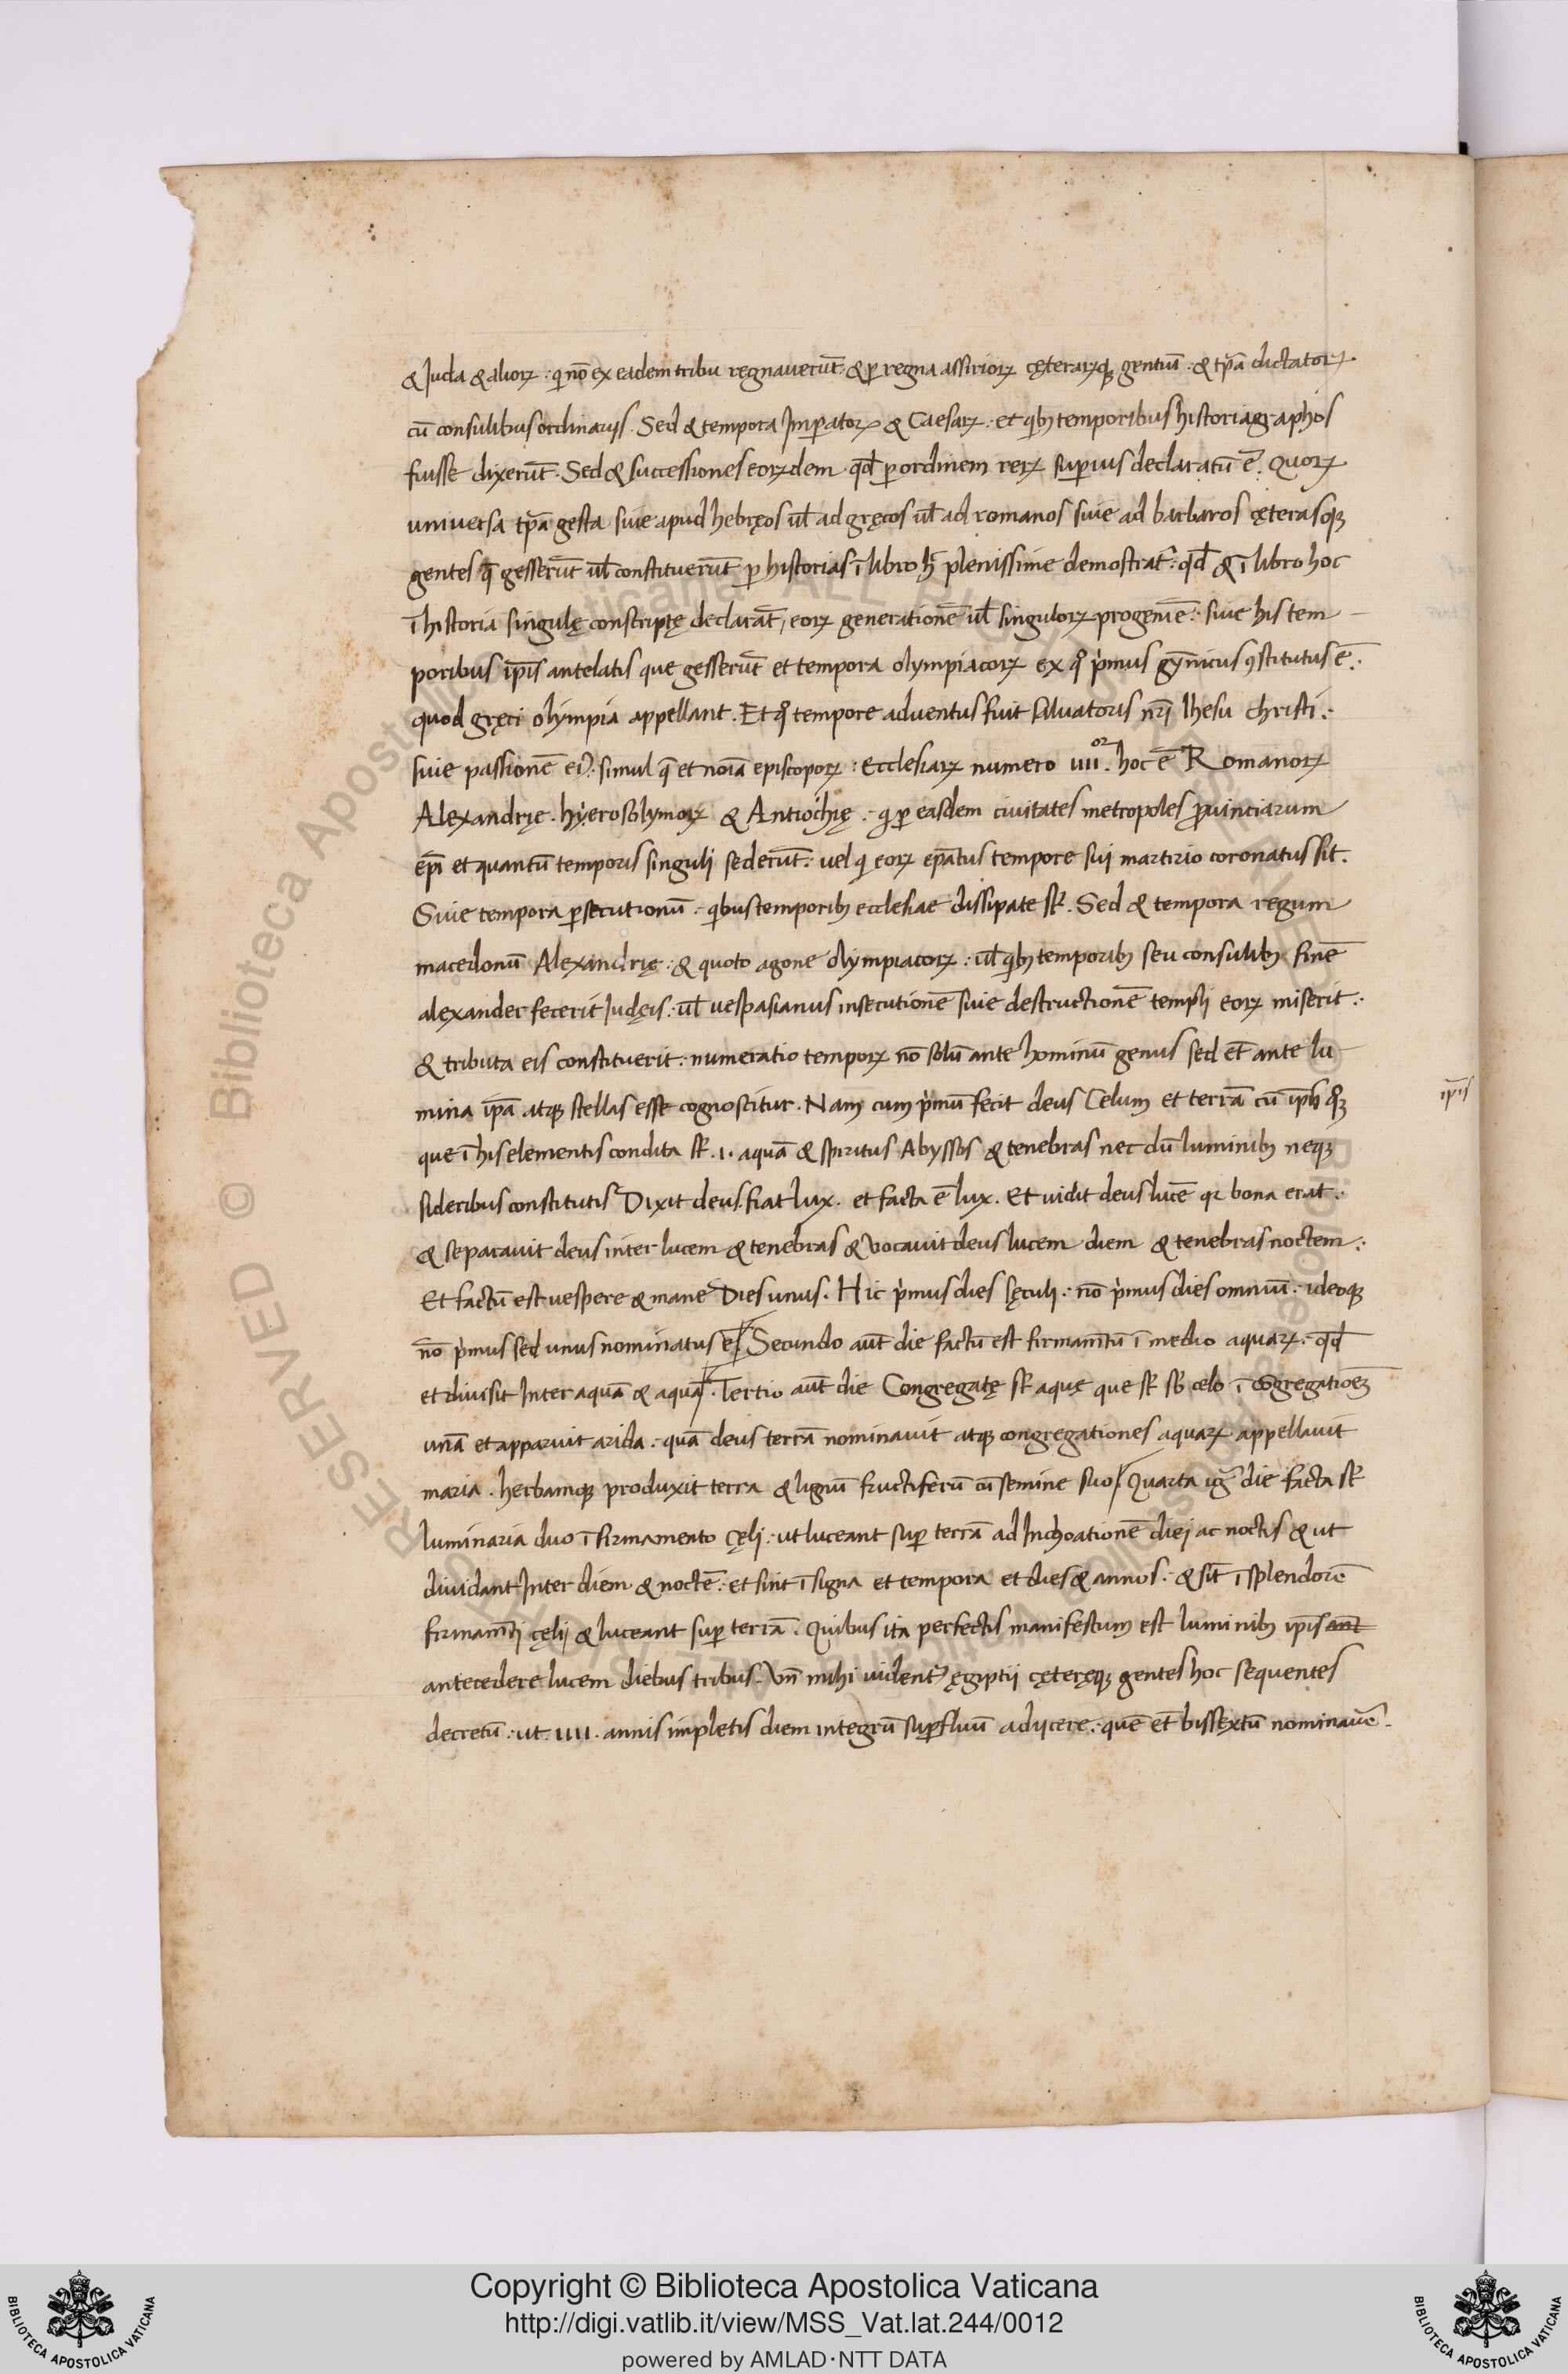 & Juda & aliorꝝ : qi nō ex eadem tribu regnauerūt : & ꝑ regna assiriorꝝ cęterarꝝqꝫ gentiū : & tpā dictatorꝝ.
cū consulibus ordinarijs. Sed & tempora Imꝑatorꝝ & Caesarꝝ : et qibꝫ temporibus historiagraphos
fuisse dixerūt. Sed & successiones eorꝝdem qđ ꝑ ordinem rerꝝ suꝑius declaratū ē. Quorꝝ
universa tpā gesta siue apud hebręos ul̄ ad gręcos ul̄ ad romanos siue ad barbaros cęterasqꝫ
gentes q̄ gesserūt ul̄ constituerūt ꝑ historias ī libro h̄ plenissime demostrat̄ : qđ & ī libro hoc
ī historia singulę conscriptę declarāt, eorꝝ generationē ul̄ singulorꝝ progeniē : siue his tem
poribus ip̄is antelatis que gesserūt et tempora olympiacorꝝ ex qo pimus gȳnicus ꝯstitutus ē :
quod gręci olimpia appellant. Et qo tempore adventus fuit saluatoris nr̄i Ihesu christi :
siue passionē ei᾿ : simul q̄ et noīa episcoporꝝ : Ecclesiarꝝ numero IIIIor. hoc ē Romanorꝝ
Alexandrię. hyerosolymorꝝ & Antiochię : qi ꝑ easdem ciuitates metropoles ꝓuinciarum
ep̄i et quantū temporis singuli sederūt : uel qi eorꝝ ep̄atus tempore sui martirio coronatus sit.
Siue tempora ꝑsecutionū : qibus temporibꝫ ecclesiae dissipate st̄. Sed & tempora regum
macedonū Alexandrię : & quoto agone olympiacorꝝ : ul̄ qibꝫ temporibꝫ seu consulibꝫ finē
alexander fecerit Judęis : ul̄ uespasianus insecutionē siue destructionē templi eorꝝ miserit :
& tributa eis constituerit : numeratio temporꝝ nō solū ante hominū genus sed et̄ ante lu
mina ip̄a atqꝫ stellas esse cognoscitur. Nam cum pimū fecit deus Celum et terrā cū ip̄is qoꝫ
ip̄is
que ī his elementis condita st̄. I. aquā & spiritus Abyssos & tenebras nec dū luminibꝫ neqꝫ
sideribus constitutis Dixit deus. fiat lux. et facta ē lux. Et uidit deus lucē qꝛ bona erat :
& separauit deus inter lucem & tenebras & vocauit deus lucem diem & tenebras noctem :
Et factū est uespere & mane Dies unus. Hic pimus dies sęculi : nō pimus dies omniū : ideoqꝫ
nō pimus sed unus nominatus ē Secundo aut̄ die factū est firmam̄tū ī medio aquarꝝ : qđ
et diuisit Inter aquā & aquā. Tertio aut̄ die Congregatę st̄ aquę que st̄ sb celo ī ꝯgregationē
unā et apparuit arida : quā deus terrā nominauit atqꝫ congregationes aquarꝝ appellauit
maria. herbamqꝫ produxit terra & lignū fructiferū cū semine suo. Quarta igr̄ die facta st̄
luminaria duo ī firmamento cęli : ut luceant suꝑ terrā ad Inchoationē diei ac noctis & ut
diuidant Inter diem & noctē : et sint ī signa et tempora et dies & annos : & sīt ī splendorē
firmam̄ti cęli, & luceant suꝑ terrā. Quibus ita perfectis manifestum est luminibꝫ ip̄is ant
antecedere lucem diebus tribus. Vn̄ mihi uident᾿ ęgiptii cęteręqꝫ gentes hoc sequentes
decretū : ut. IIII. annis impletis diem integrū suꝑfluū adijcere : quē et̄ bissextū nominauē.
Copyright © Biblioteca Apostolica Vaticana
http://digi.vatlib.it/view/MSS_Vat.lat.244/0012
powered by AMLAD·NTT DATA